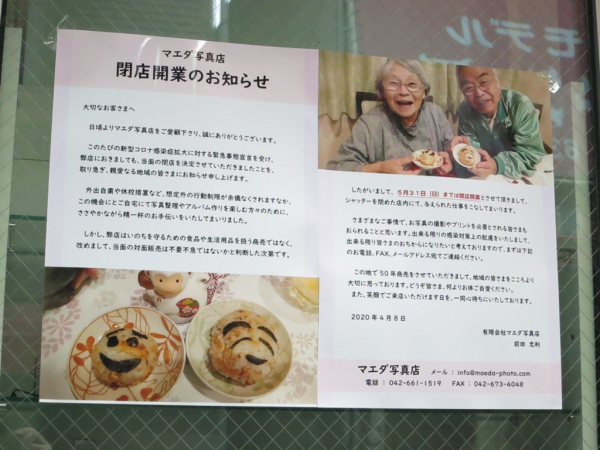 マエダ写真店
閉店開業のお知らせ
大切なお客さまへ
日頃よりマエダ写真店をご愛顧下さり、誠にありがとうございます。
このたびの新型コロナ感染症拡大に対する緊急事態宣言を受け、
弊店におきましても、当面の閉店を決定させていただきましたことを、
取り急ぎ、親愛なる地域の皆さまにお知らせ申し上げます。
外出自粛や休校措置など、想定外の行動制限が余儀なくされますなか、
この機会にとご自宅にて写真整理やアルバム作りを楽しむ方々のために、
ささやかながら精一杯のお手伝いをいたしてまいりました。
しかし、弊店はいのちを守るための食品や生活用品を扱う商売ではなく、
改めまして、当面の対面販売は不要不急ではないかと判断した次第です。
したがいまして、5月31日(日)までは閉店開業とさせて頂きまして、
シャッターを閉めた店内にて、与えられた仕事をこなしてまいります。
さまざまなご事情で、お写真の撮影やプリントを必要とされる皆さまも
おられることと思います。出来る限りの感染対策上の配慮をいたしまして、
出来る限り皆さまのおちからになりたいと考えておりますので、まずは下記
のお電話、FAX、メールアドレス宛てご連絡ください。
この地で50年商売をさせていただきまして、地域の皆さまをこころより
大切に思っております。どうぞ皆さま、何よりお体ご自愛ください。
また、笑顔でご来店いただけます日を、一同心待ちにいたしております。
2020年4月8日
有限会社マエダ写真店
前田 忠利
マエダ写真店 メール : info@maeda-photo.com
電話 : 042-661-1519 FAX : 042-673-4048
モデル